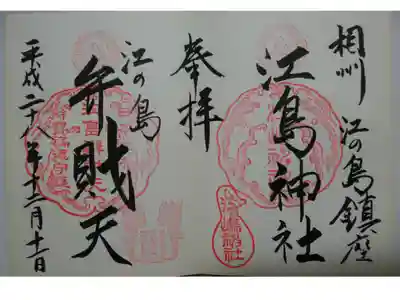 相州 江の島鎮座
江島神社
奉拝
江の島
弁財天
平成二十八年十二月十一日